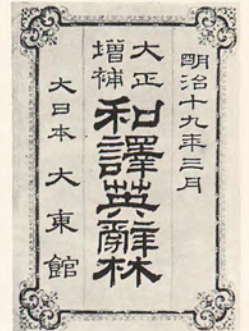 明治十九年三月
大正
增補
和譯英辭林
大日本 大東館